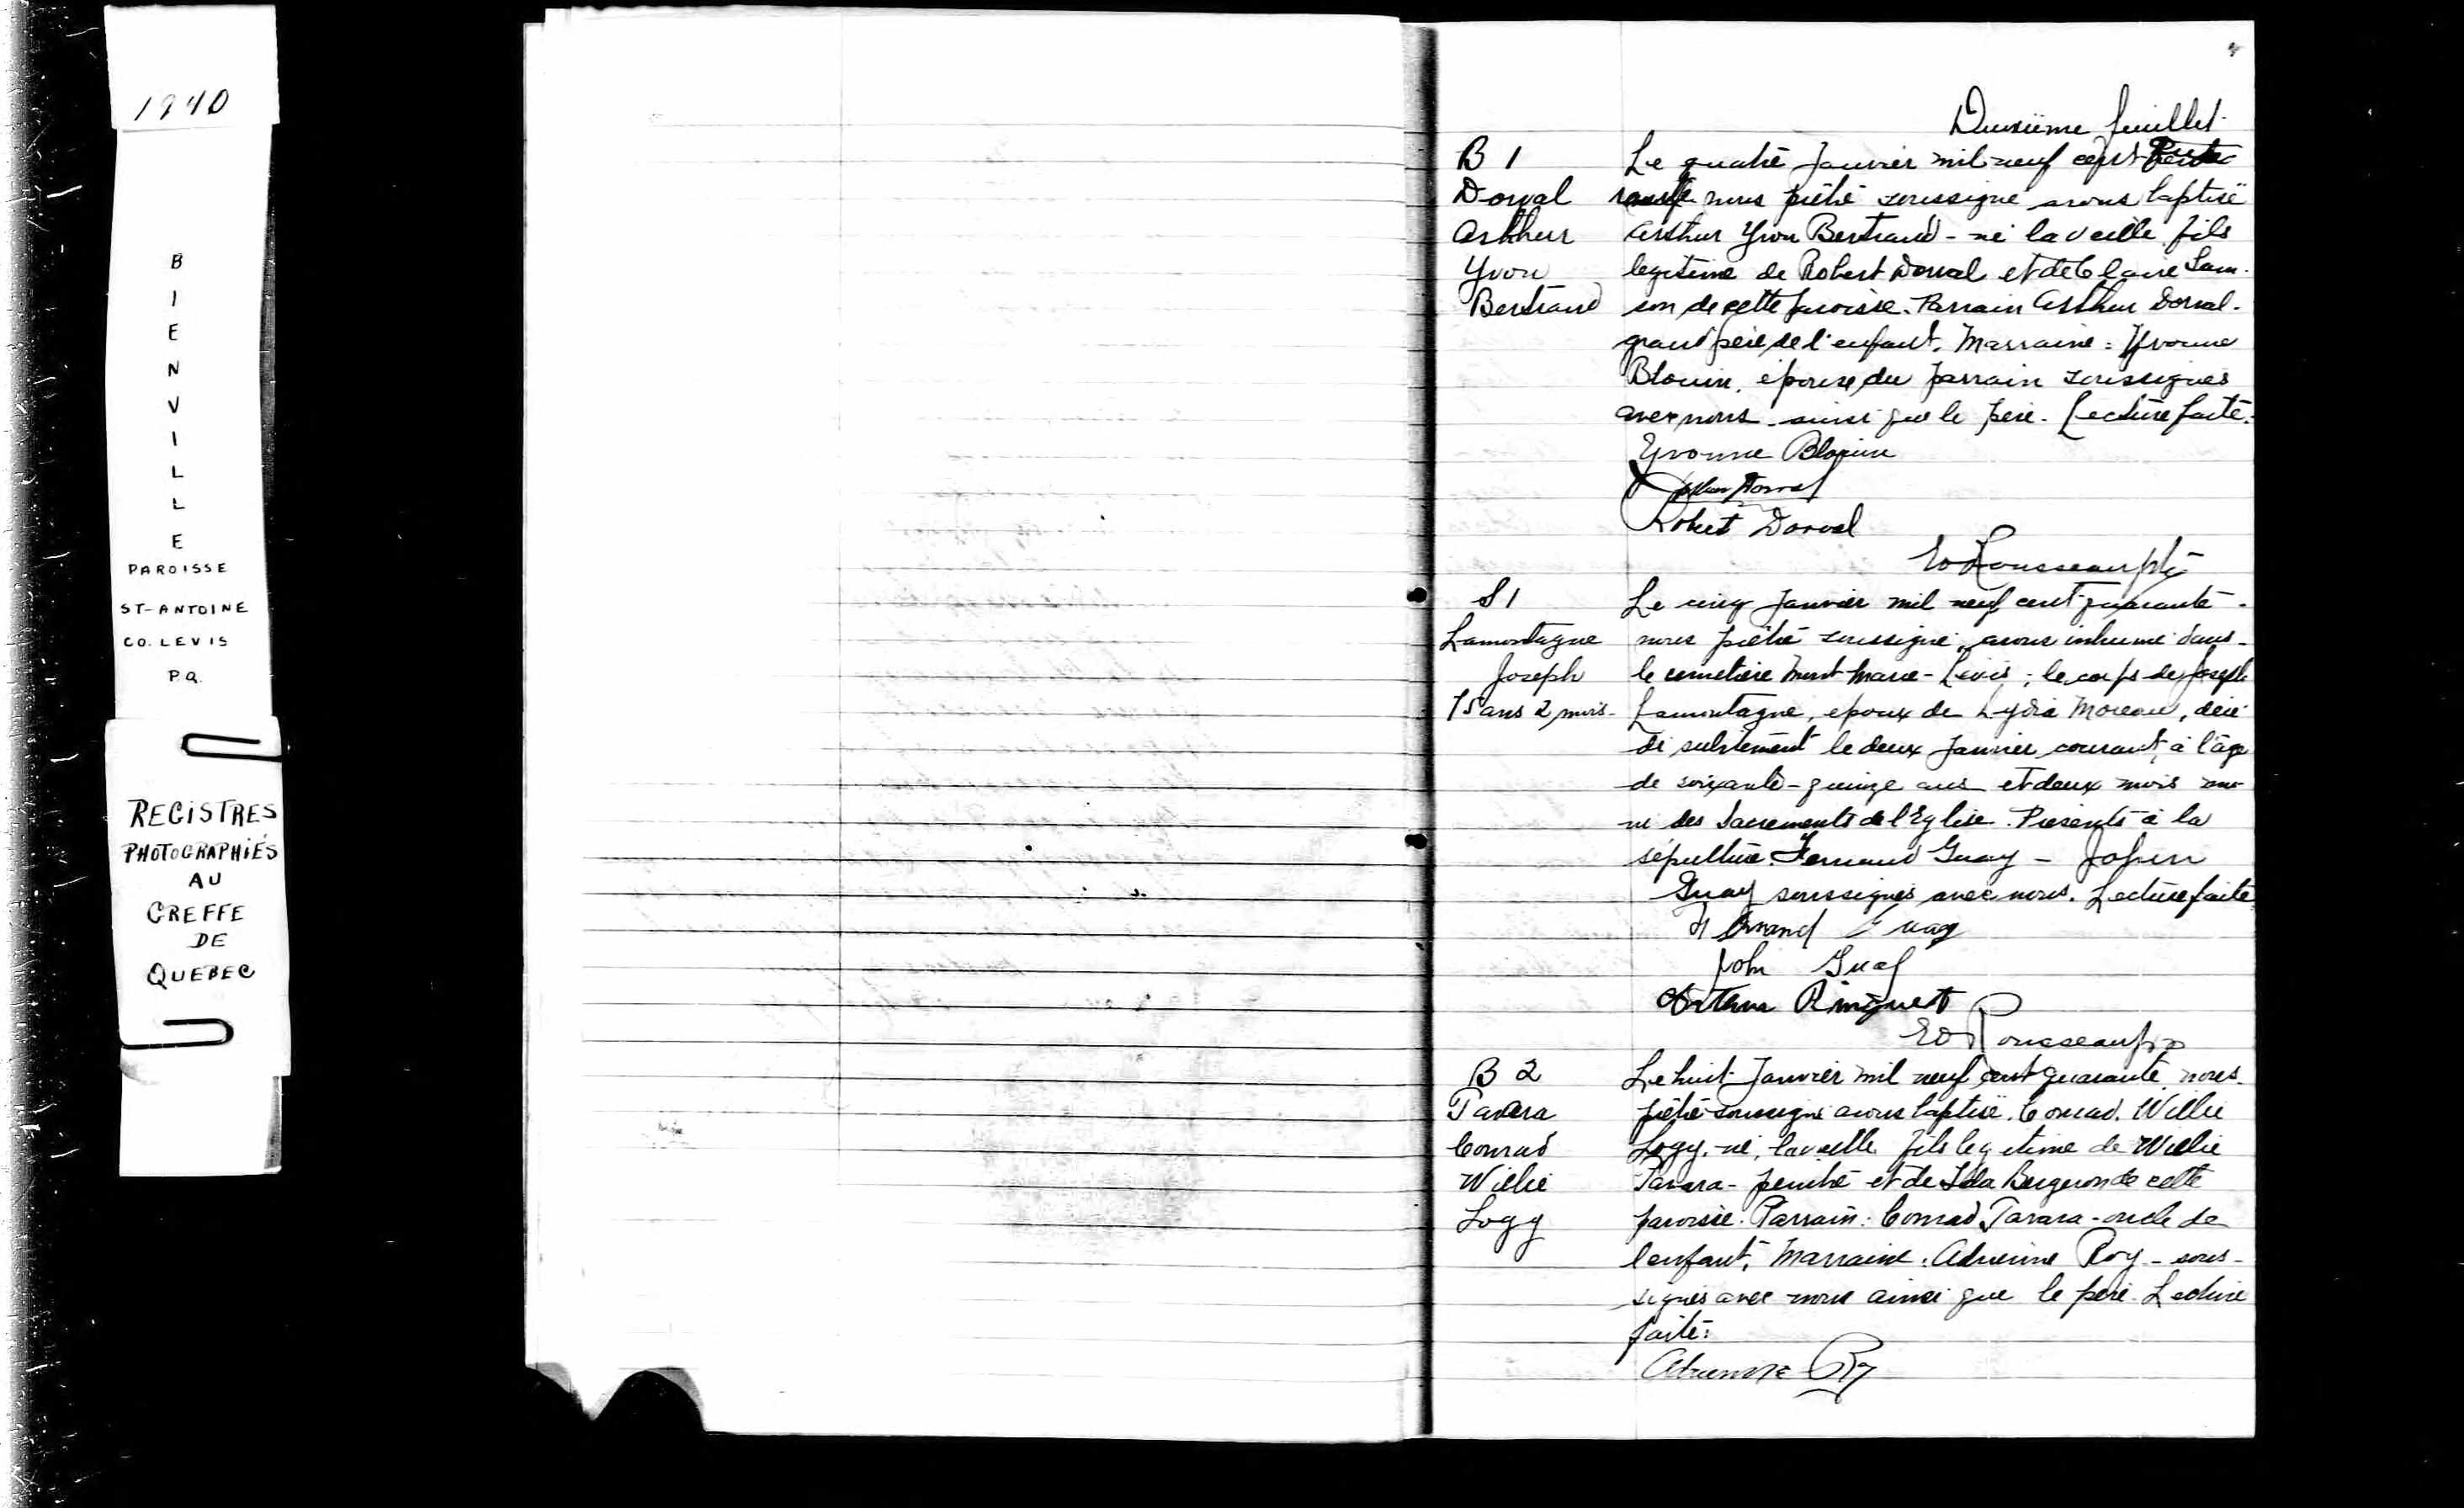 1940
B
I
E
N
V
I
L
L
E
PAROISSE
ST-ANTOINE
CO. LEVIS
P.Q.
REGISTRES
PHOTOGRAPHIÉS
AU
GREFFE
DE
QUEBEC
Deuxième feuillet
B 1
Dorval
Arthur
Yvon
Bertrand
Le quatre Janvier mil neuf cent
nous prêtre soussigné avons baptisé
Arthur Yvon Bertrand - né la veille fils
legitime de Robert Dorval et de Claire Sam-
son de cette paroisse. Parrain Arthur Dorval.
grand père de l'enfant. Marraine : Yvonne
Blouin, épouse du parrain soussignés
avec nous ainsi que le père. Lecture faite.
Yvonne Blouin
Arthur Dorval
Robert Dorval
Ed Rousseau ptre
S 1
Lamontagne
Joseph
75 ans 2 mois
Le cinq Janvier mil neuf cent quarante.
nous prêtre soussigné, avons inhumé dans
le cimetière Mont Marie - Lévis ; le corps de Joseph
Lamontagne, époux de Lydia Moreau, décé-
dé subitement le deux Janvier courant, à l'âge
de soixante-quinze ans et deux mois mu-
ni des Sacrements de l'Eglise. Présents à la
sépulture. Fernand Guay - John
Guay soussignés avec nous. Lecture faite
Fernand Guay
John Guay
Arthur Ringuet
Ed Rousseau ptre
B 2
Tavara
Conrad
Willie
Logy
Le huit Janvier mil neuf cent quarante, nous
prêtre soussigné avons baptisé. Conrad. Willie
Logy. né, la veille fils legitime de Willie
Tavara - peintre et de Ida Bergeron de cette
paroisse. Parrain : Conrad Tavara - oncle de
l'enfant, Marraine : Adrienne Roy - sous-
signés avec nous ainsi que le père. Lecture
faite :
Adrienne Roy